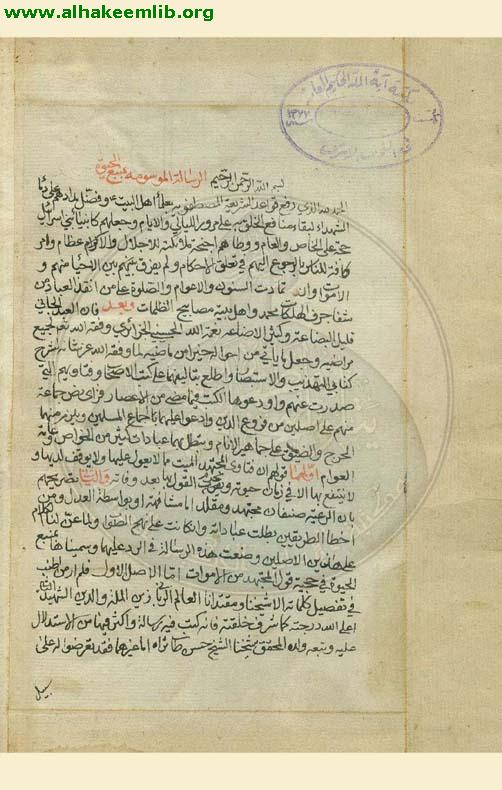 www.alhakeemlib.org
بسم الله الرحمن الرحيم الرسالة الموسومة بمنبع الحيوة
الحمد لله الذي رفع قواعد الشريعة المصطفوية بعلماء أهل البيت وفضل مدادهم على دماء
الشهداء لبقاء منافع الخلق به على مرور الليالي والايام وجعلهم كأنبياء بني اسرائيل
حجة على الخاص والعام ووطأ لهم اجنحة ملائكته للاجلال والاكرام والاعظام وامر
كافة الناس بالرجوع اليهم في تعلق الاحكام ولم يفرق بينهم بين الاحياء منهم و
الاموات وان تمادت السنون والاعوام والصلوة على من انقذ العباد من
شفا جرف الهلكات محمد واهل بيته مصابيح الظلمات وبعد فان العبد الجاني
قليل البضاعة وكثير الاضاعة نعمة الله الحسيني الجزائري وفقه الله تعالى لجميع
مراضيه وجعل ما يأتي من احواله خيرا من ماضيه لما وفقه الله عز شأنه لشرح
كتابي التهذيب والاستبصار واطلع بتأليفهما على كتب الاصحاب وفتاويهم التي
صدرت عنهم واودعوها الكتب فيما مضى من الاعصار فرأى بعض جماعة
منهم على اصلين من فروع الدين وادعوا عليهما اجماع المسلمين ويلزم منهما
الحرج والضيق على جماهير الانام وتبطل بهما عبادات كثير من الخواص وعامة
العوام اولهما قولهم ان فتاوى المجتهد الميت مما لا يعول عليها ولا يوقف لديها و
لا ينتفع بها الا في زمان حيوته ويموت القول بها بعد وفاته والثاني تصريحهم
بان الرعية صنفان مجتهد ومقلد اما مشافهة او بواسطة العدل ومن
اخطأ الطريقين بطلت عباداته وان كانت على نهج الصدق ولما عزّ لنا الكلام
على هاتين الاصلين وضعت هذه الرسالة في الرد عليهما وسميناها بمنبع
الحيوة في حجية قول المجتهد من الاموات اما الاصل الاول فلم ار من اطنب
في تفصيل كلماته الا شيخنا ومقتدانا العالم الرباني زين الملة والدين الشهيد الثاني
اعلى الله درجته كما شرف خلقته فانه كتب فيه رسالة واكثر فيها من الاستدلال
عليه وتبعه ولده المحقق شيخنا الشيخ حسن طاب ثراه اما غيرهما فقد تعرضوا له على
سبيل